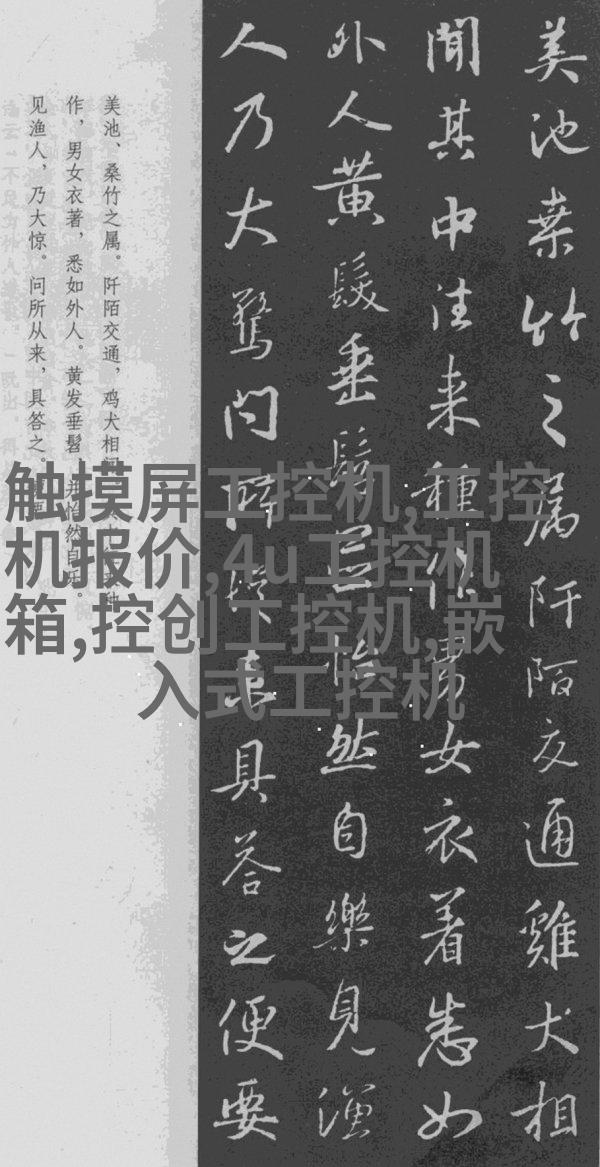 美池桒竹之属阡陌交通雞犬相
聞其中往来種作男女衣着悉如
外人黄髮垂髫並怡然自樂見漁
人乃大驚問所從来具答之便要
美池、桑竹之属。阡陌交通，鸡犬相
作，男女衣著，悉如外人。黄发垂髫，并怡然自
见渔人，乃大惊。问所从来，具答之。
触摸屏工控机,工控
机报价,4u工控机
箱,控创工控机,嵌
入式工控机